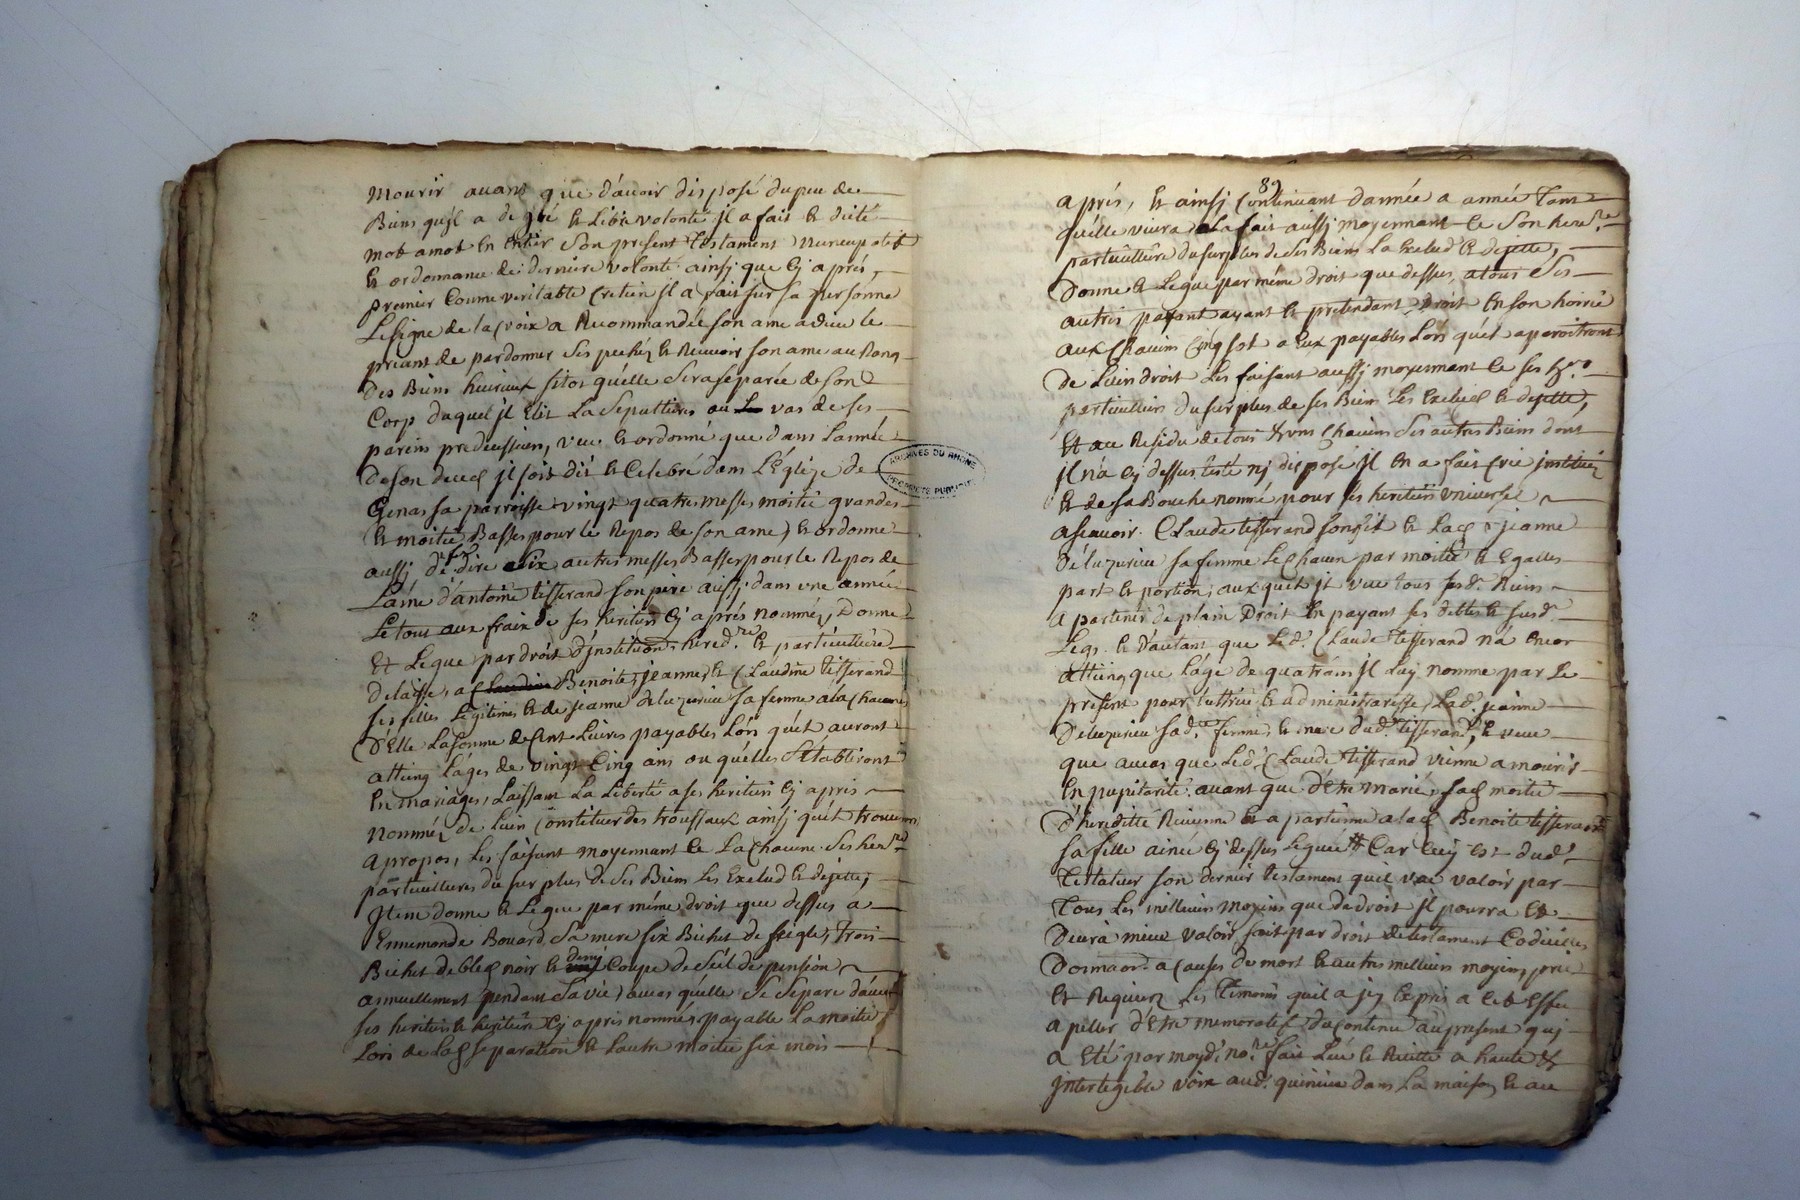 mourir auant que d'auoir disposé du peu de
Biens qu'jl a de gré et Libre volonté jl a fait et dicté
mot a mot en entier son present testament nuncupatif
et ordonnance de derniere volonté ainsj que cj aprés,
premier Comme veritable Cretien jl a fait sur sa personne
Le signe de la Croix a Recommandée son ame a dieu le
priant de pardonner ses pechéz et Receuoir son ame au Rang
des Biens heureux sitot qu'elle sera separée de son
Corp duquel jl Elit La Sepulture au vas de ses
parens predecessieurs, veut et ordonne que dans l'année
de son deced jl soit dit et Celebré dans L'Eglize de
Genas sa parroisse vingt quatres messes moitié grandes
et moitié Basses pour le Repos de son ame, et ordonne
aussj de dire six autres messes Basses pour le Repos de
L'ame d'antoine tisserand son pere aussj dans une année
Le tout aux fraix de ses heritiers cj aprés nomméz, Donne
Et Legue par droit d'jnstitution hered.re et particulliere
delaisse, a Claudine Benoite, jeanne, et Claudine tisserand
ses filles Légitimes et de jeanne deluzurieu sa femme a la chacune
d'Elle La somme de Cent Liures payables Lors qu'et auront
atteing L'ages de vingt Cinq ans ou qu'elles s'Etabliront
En mariages, Laissant La Liberté a ses heritiers cj aprés
nomméz de Leur Constituer des troussaux ainsj qu'et trouueront
apropos, Les faisant moyennant ce La Chacune ses her.res
particullieres du sur plus de ses Biens Les Exclud et dejette,
Jtem donne et Legue par méme droit que dessus a
Ennemonde Bouard, Sa mere six Bichet de seigle, trois
Bichet de bled noir et demy Coupe de sel de pension
annuellement pendant sa vie, aucas quelle se separe d'auec
ses heritiers et heritiere cj aprés nommés, payable La moitié
Lors de lad separation et L'autre moitié six mois
89
aprés, et ainsj Continuant d'année a année Tant
qu'elle viura La fait aussj moyennant ce Son here.re
particulliere du surplus de ses Biens La Exclud et dejette,
Donne et Legue par méme droit que dessus, a tous Ses
autres parant ayant et pretendant Droit En son hoirie
aux Chacuns Cinq sol a Eux payables Lors qu'et aparoitront
de Leur droit Les faisant aussj moyennant ce ses hr.s
particulliers du surplus de ses Biens Les Exclud et dejette,
Et au Residu de tous Chacuns Ses autres Biens dont
jl n'a cj dessus testé nj disposé jl En a fait Créé jnstitué
et de sa Bouche nommé, pour ses heritiers vniuersel
a scauoir. Claude tisserand son fils et Lad jeanne
deluzurieu sa femme Le Chacun par moitié et Egalles
part et portion, auxquels jl veut tous sesd. Biens
apartenir de plain Droit En payant ses debtes et susd.
Legs. et D'autant que Led. Claude tisserand na Encor
atteing que L'age de quatr'ans jl Luy nomme par Le
present pour tuttrice et administraresse, Lad. jeanne
Deluzurieu sad.te femme, et mere dud. tisserand, et veut
que aucas que Led. Claude tisserand vienne a mourir
En pupilarité auant que d'Etre marié, sad moitié
d'heredité Reuienne et apartienne alad Benoite tisserand
sa fille ainée cj dessus Leguée Car Cecy Est dud.
Testateur son dernier testament qu'il veut valoir par
Tous Les meilleurs moyens que de droit jl pourra et
deura mieux valoir soit par droit de testament Codicilles
Donnaon. a Causes de mort et autres meilleurs moyens, prie
Et Requiert Les témoins qu'il a jcy Expres a cet Effet
apeller d'Etre memoratif du Contenu au present quj
a Eté par moyd. no.re fait Lut et Recitté a haute et
jntelegible voix aud. dans La maison et au